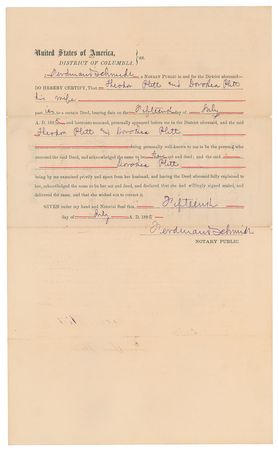 United States of America,
DISTRICT OF COLUMBIA, } ss.
I, Ferdinand Schmidt, A NOTARY PUBLIC in and for the District aforesaid
DO HEREBY CERTIFY, That Theodor Plitt and Dorothea Plitt
his wife
part ies to a certain Deed, bearing date on the Fifteenth day of July
A. D. 188 and hereunto annexed, personally appeared before me in the District aforesaid, the said
Theodor Plitt and Dorothea Plitt
being personally well-known to me to be the persons who
executed the said Deed, and acknowledged the same to be their act and deed; and the said
Dorothea Plitt
being by me examined privily and apart from her husband, and having the Deed aforesaid fully explained to
her, acknowledged the same to be her act and deed, and declared that she had willingly signed, sealed, and
delivered the same, and that she wished not to retract it.
GIVEN under my hand and Notarial Seal this Fifteenth
day of July A. D. 188
Ferdinand Schmidt
NOTARY PUBLIC